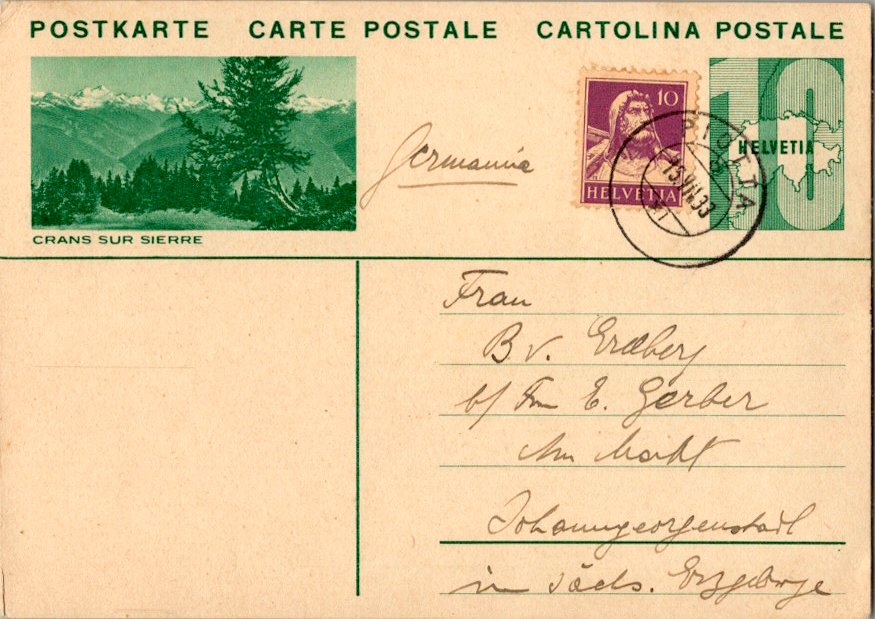 POSTKARTE CARTE POSTALE CARTOLINA POSTALE
10
HELVETIA
10
HELVETIA
PIOTTA
15.VII.33
CRANS SUR SIERRE
Germania
Frau
B v. Erdberg
b/ Frau E. Gerber
Am Markt
Johanngeorgenstadt
in Sächs. Erzgebirge